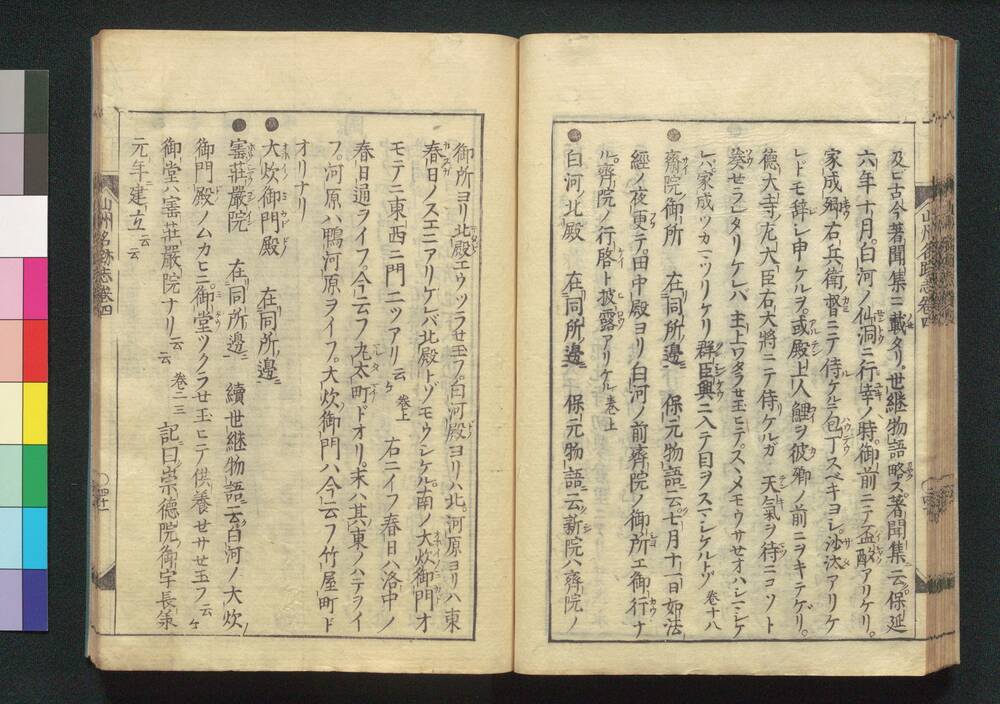 及ヒ古今著聞集ニ載タリ世継物語略ス著聞集ニ云保延
六年十月白河ノ仙洞ニ行幸ノ時御前ニテ盃酌アリケリ
家成卿右兵衛督ニテ侍ケルニ包丁スベキヨシ沙汰アリケ
レドモ辞シ申ケルヲ或殿上人鯉ヲ彼卿ノ前ニヲキテゲリ
徳大寺左大臣右大將ニテ侍ケルガ天氣ヲ待ニコソト
奏セラレタリケレバ主上ワタラせ玉ヒテスヽメモウサせオハシマシケ
レバ家成ツカマツリケリ群臣興ニ入テ目ヲスマシケルトゾ 巻十八
齋院御所 在同所邊 保元物語ニ云七月十一日如法
經ノ夜更テ田中殿ヨリ白河ノ前齊院ノ御所エ御行ナ
ル齊院ノ行啓ト披露アリケル 巻上
白河北殿 在同所邊 保元物語ニ云新院ハ齊院ノ
山州名跡志巻四
御所ヨリ北殿エウツラせ玉フ白河殿ヨリハ北河原ヨリハ東
春日ノスエニアリケレバ北殿トゾモウシケル南ノ大炊御門オ
モテニ東西ニ門二ツアリ云々 巻上 右ニイフ春日ハ洛中ノ
春日通ヲイフ今云フ丸太町ドオリ末ハ其東ノハテヲイ
フ河原ハ鴨河原ヲイフ大炊御門ハ今云フ竹屋町ド
オリナリ
大炊御門殿 在同所邊
寳莊嚴院 在同所邊 續世継物語ニ云白河ノ大炊
御門殿ノムカヒニ御堂ツクラせ玉ヒテ供養せサせ玉フ云々
御堂ハ寳莊嚴院ナリ云云 巻二三 記曰崇德院御宇長承
元年建立云云
山州名跡志巻四
四十一